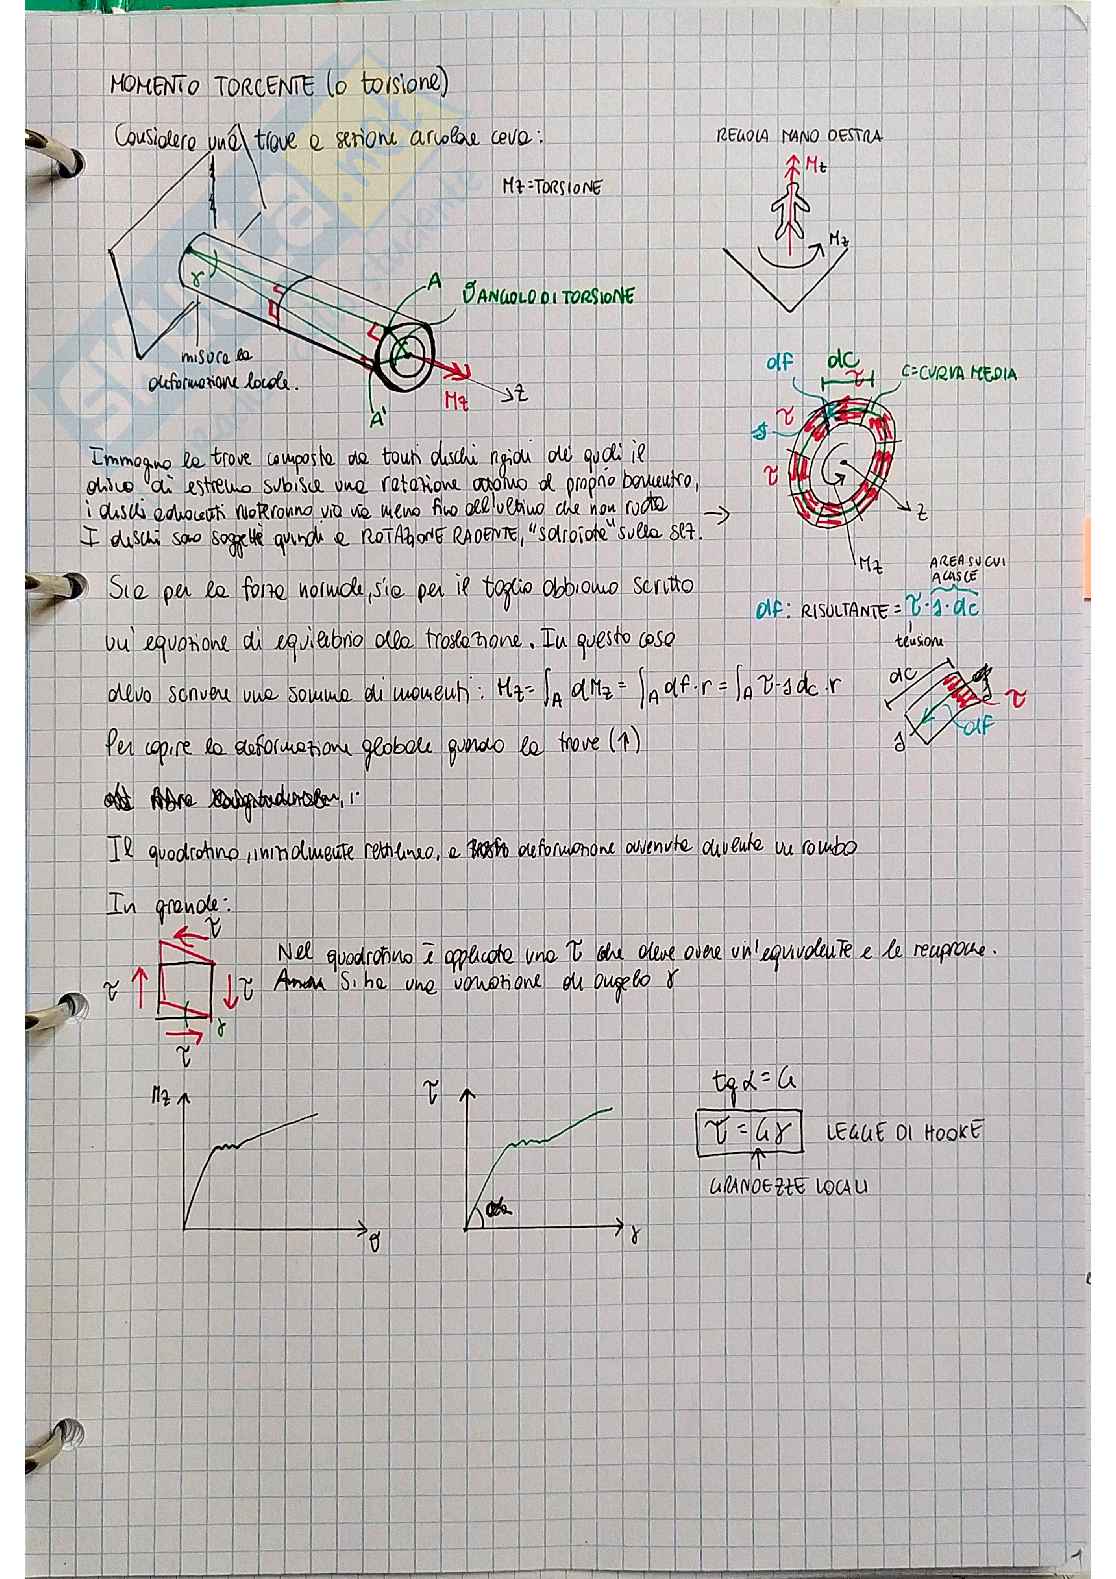 MOMENTO TORCENTE (o torsione)
Considero una trave a sezione circolare cava:
REGOLA MANO DESTRA
Mz
Mz=TORSIONE
Mz
γ
A
ϑ ANGOLO DI TORSIONE
misura la
deformazione locale.
Mz
z
A'
df
dC
τ
C=CURVA MEDIA
τ
s
τ
z
Mz
Immagino la trave composta da tanti dischi rigidi dei quali il
disco di estremo subisce una rotazione attorno al proprio baricentro,
i dischi adiacenti ruoteranno via via meno fino all'ultimo che non ruota
I dischi sono soggetti quindi a ROTAZIONE RADENTE, "sdraiata" sulla sez.
AREA SU CUI
AGISCE
Sia per la forza normale, sia per il taglio abbiamo scritto
df: RISULTANTE = τ·s·dc
tensione
un'equazione di equilibrio alla traslazione. In questo caso
devo scrivere una somma di momenti: Mz=∫A dMz = ∫A df·r = ∫A τ·s dc·r
dC
τ
s
df
Per capire la deformazione globale guardo la trave (↑)
Il quadratino, inizialmente rettilineo, a deformazione avvenuta diventa un rombo
In grande:
τ
Nel quadratino è applicata una τ che deve avere un'equivalente e le reciproche.
τ
τ
Si ha una variazione di angolo γ
γ
τ
Mz
τ
tg α = G
τ = Gγ LEGGE DI HOOKE
GRANDEZZE LOCALI
ϑ
γ
1